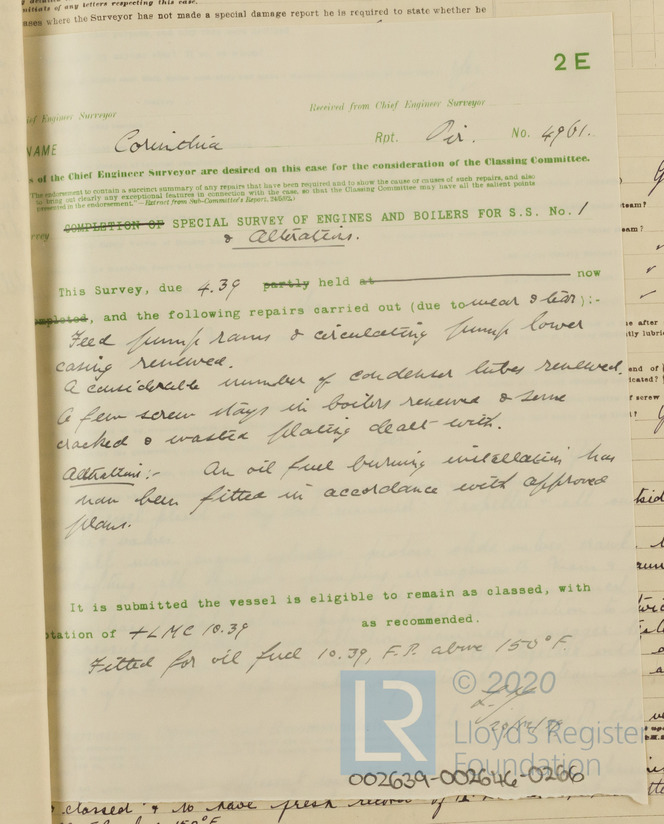 initials of any letters respecting this case.
ases where the Surveyor has not made a special damage report he is required to state whether he
2 E
ief Engineer Surveyor
Received from Chief Engineer Surveyor
NAME Corinthia Rpt. Pir. No. 4961.
s of the Chief Engineer Surveyor are desired on this case for the consideration of the Classing Committee.
The endorsement to contain a succinct summary of any repairs that have been required and to show the cause or causes of such repairs, and also
to bring out clearly any exceptional features in connection with the case, so that the Classing Committee may have all the salient points
presented in the endorsement."—Extract from Sub-Committee's Report,
rvey COMPLETION OF SPECIAL SURVEY OF ENGINES AND BOILERS FOR S.S. No. 1
& Alterations.
This Survey, due 4.39 partly held at now
ompleted, and the following repairs carried out (due to wear & tear):-
Feed pump rams & circulating pump lower
casing renewed.
A considerable number of condenser tubes renewed.
A few screw stays in boilers renewed & some
cracked & wasted plating dealt with.
Alterations:- An oil fuel burning installation has
now been fitted in accordance with approved
plans.
It is submitted the vessel is eligible to remain as classed, with
otation of +LMC 10.39 as recommended.
Fitted for oil fuel 10.39, F.P. above 150°F.
© 2020
LR
Lloyd's Register
Foundation
002639-002646-0266
classed & to have fresh record of
150°F